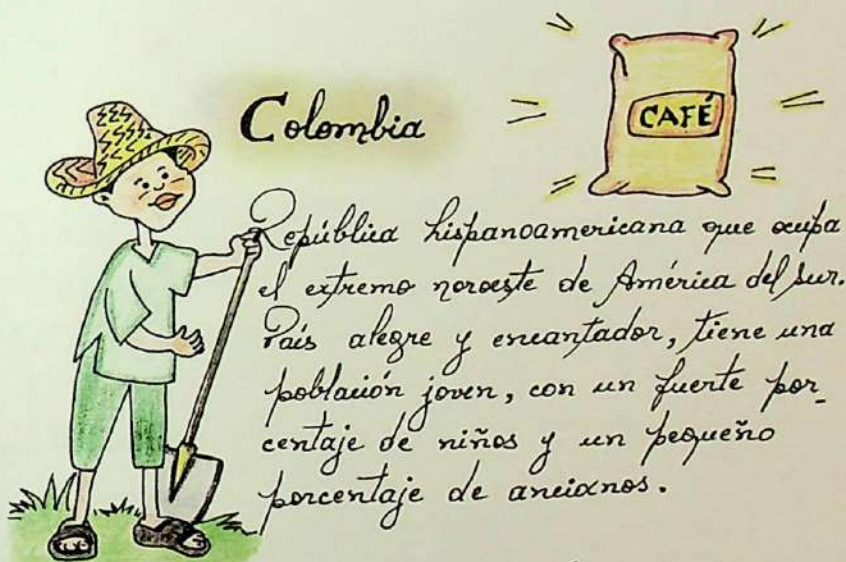 Colombia
CAFÉ
República hispanoamericana que ocupa
el extremo noroeste de América del Sur.
País alegre y encantador, tiene una
población joven, con un fuerte por-
centaje de niños y un pequeño
porcentaje de ancianos.